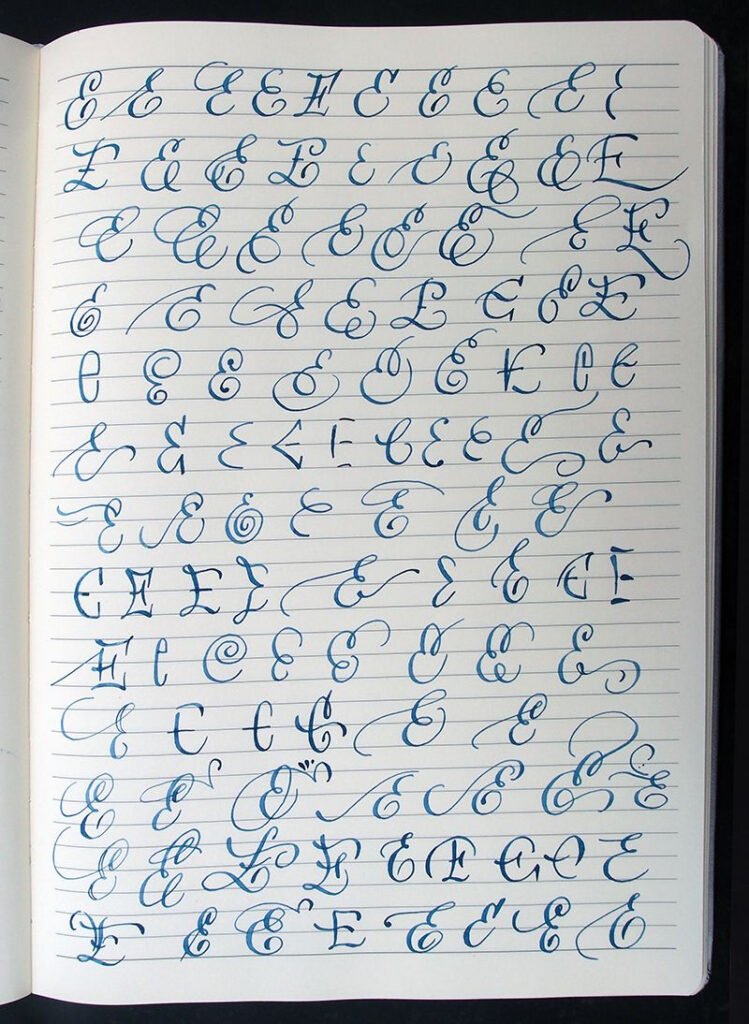 E E E E E E E E E E
E E E E E E E E E
E E E E E E E E
E E E E E E E E
E E E E E E E E E
E E E E E E E E E E
E E E E E E E
E E E E E E E E E
E E E E E E E E
E E E E E E
E E E E E E E
E E E E E E E E E
E E E E E E E E